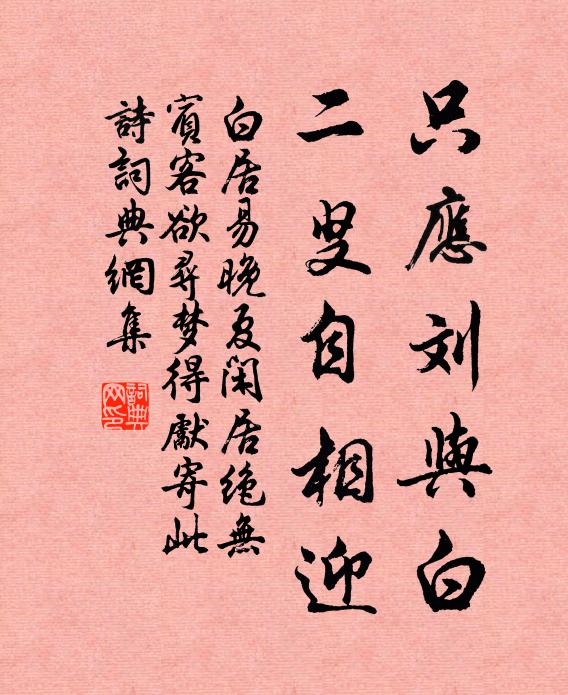 只應刘與白
二叟自相迎
白居易晚夏闲居绝無
賓客欲尋梦得獻寄此
詩詞典網集
詞典
网印